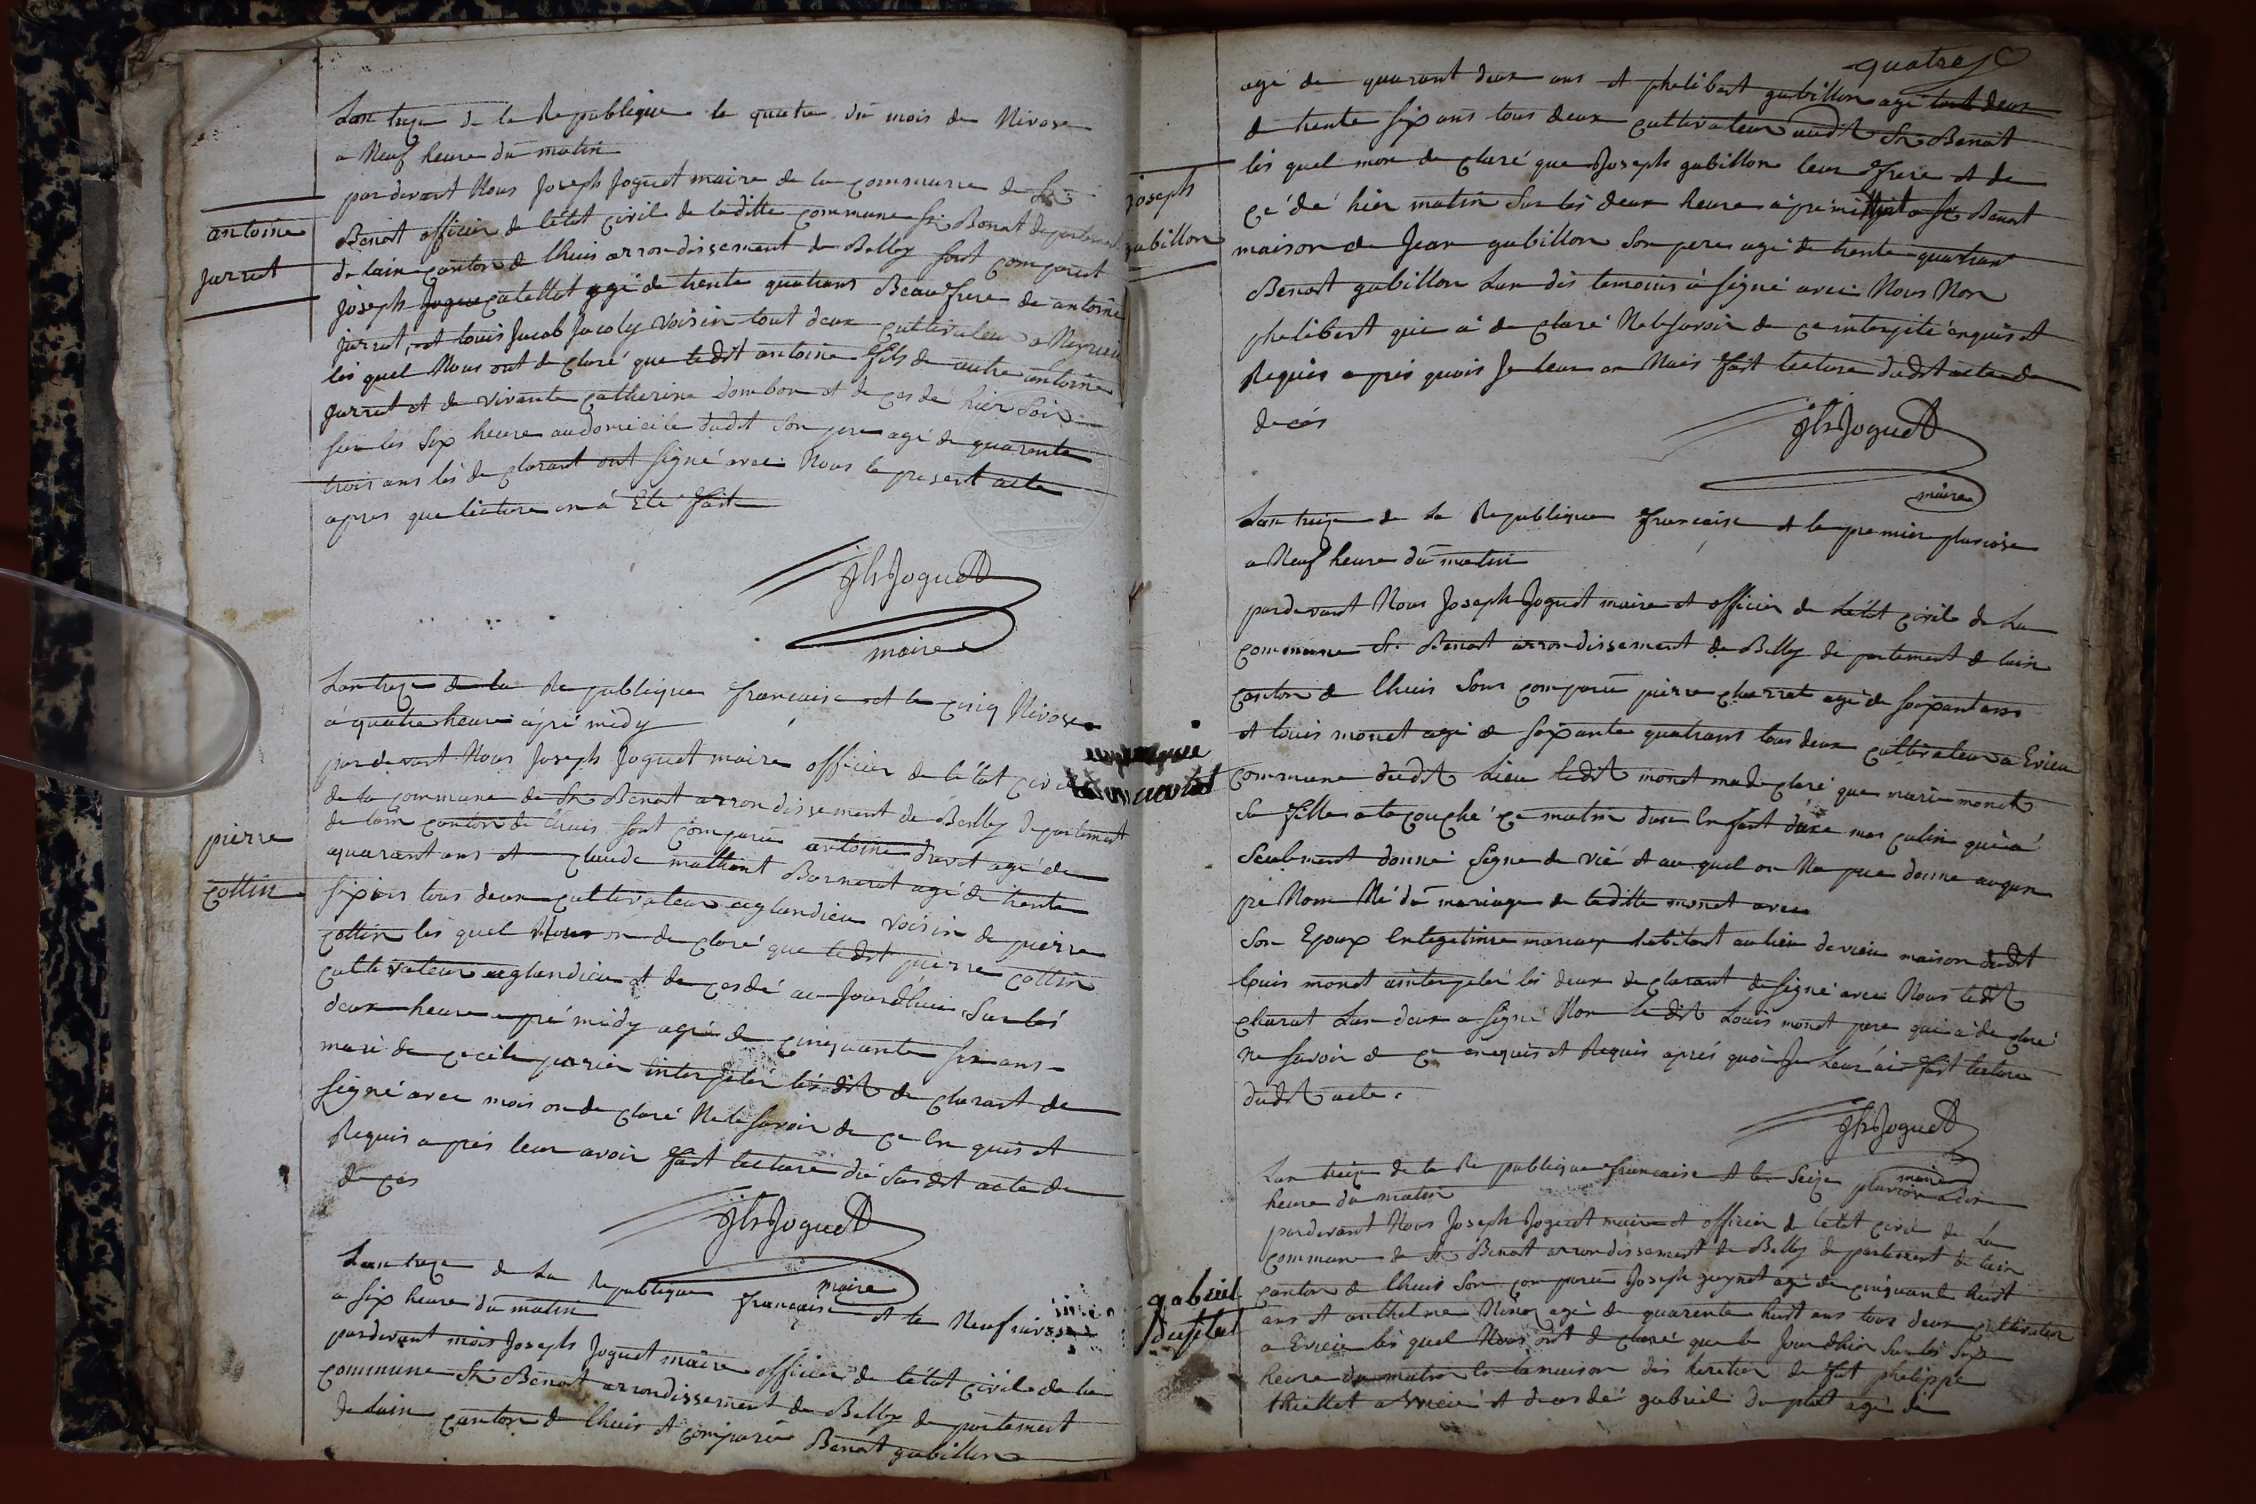 Lan treze de la Republique le quatre du mois de Nivose
a Neuf heure du matin
pardevant Nous Joseph Joguet maire de la commune de St
Benoit officier de létat civil de laditte commune St Benoit departement
de lain canton de lhuis arrondissement de Belley sont comparut
antoine
jurret
joseph catellot agé de trente quatrans Beaufrere de antoine
jurret, et louis Jacob Jacoly voisin tout deux cultivateur a
les quel Nous ont de claré que ledit antoine fils de autre antoine
jurret et de vivante catherine dombon et de ces dé hier soir
sur les six heure audomicile dudit son pere agé de quarante
trois ans les de clarant ont signé avec Nous le present acte
apres que lecture en á Eté fait
Jh Joguet
maire
Lan treze de la Republique francaise et le cinq Nivose
á quatre heure apré midy
pardevant Nous Joseph Joguet maire officier de létat civil
de la commune de St Benoit arrondissement de Belley departement
de lain canton de lhuis sont comparu antoine druet agé de
pierre
cottin
quarant ans et claude mathent Bornerat agé de trente
six ans tous deux cultivateur aglandieu voisin de pierre
cottin les quel Nous on de claré que ledit pierre cottin
cultivateur aglandieu et de ces dé au Jourdhui sur les
deux heure apré midy agé de cinquante six ans
mari de cecile perrier interpelér lesdit de clarant de
signé avec mois on de claré Ne le savoir de ce En quis et
Requis aprés leur avoir fait lecture du susdit acte de
de ces
Jh Joguet
maire
Lan treze de la Republique francaise et le Neuf nivose
a six heure du matin
pardevant mois Joseph Joguet maire officier de létat civile de la
commune St Benoit arrondissement de Belley de partement
de lain canton de lhuis et comparu Benoit gubillon
quatre
agé de quarant deux ans et phelibert gubillon agé tout deux
de trente six ans tous deux cultivateur audit St Benoit
joseph
gubillon
les quel mon de claré que Joseph gubillon leur frere et de
cé dé hier matin sur les deux heure apré minuit a St Benoit
maison de Jean gubillon son pere agé de trente quatrans
Benoit gubillon Lun dis temoins á signé avec Nous Non
phelibert qui á de claré Ne le savoir de ce interpelé anquis et
Requis aprés quois Je leur an Nais fait lecture dudit acte de
de cés
Jh Joguet
maire
Lan treize de La Republique francaise et le premier pluviose
a Neuf heure du matin
pardevant Nous Joseph Joguet maire et officier de létat civile de La
commune St Benoit arrondissement de Belley de partement de lain
canton de lhuis sont comparu pierre charret agé de soixant ans
et louis monet agé de soixante quatrans tous deux cultivateur a Evieu
commune dudit Lieu ledit monet ma de claré que marie monet
sa fille a la couché ce matin dun Enfant du sexe mas culin qui á
seulement donné signe de vié et au quel on Na pue donne aucun
pré Nom Né du mariage de laditte monet avec
son Epoux habitant au lieu devieu maison dudit
louis monet interpelér les deux de clarant de signé avec Nous ledit
charet Lun deux a signé Non le dit Louis monet pere qui á de claré
Ne savoir de ce enquis et Requis aprés quoi Je Leur ai fait lecture
dudit acte
Jh Joguet
maire
Lan treize de la Republique francaise et le seize pluviose a dix
heure du matin
pardevant Nous Joseph Joguet maire et officier de létat civil de La
commune de St Benoit arrondissement de Belley de partement de lain
gabriel
duplat
canton de lhuis son comparu Joseph guynet agé de cinquante huit
ans et anthelme Nisier agé de quarente huit ans tous deux cultivateur
a Evieu les quel Nous ont de claré que le Jourdhier sur les six
heure du matin En la maison des heretier de fut philippe
thiellet a Evieu et deces dé gabriel du plat agé de